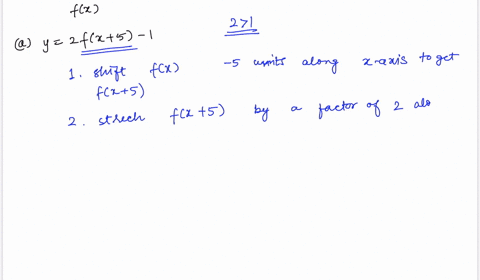 f(x)
2>1
(a) y = 2f(x+5) - 1
1. shift f(x) -5 units along x-axis to get
f(x+5)
2. strech f(x+5) by a factor of 2 alo